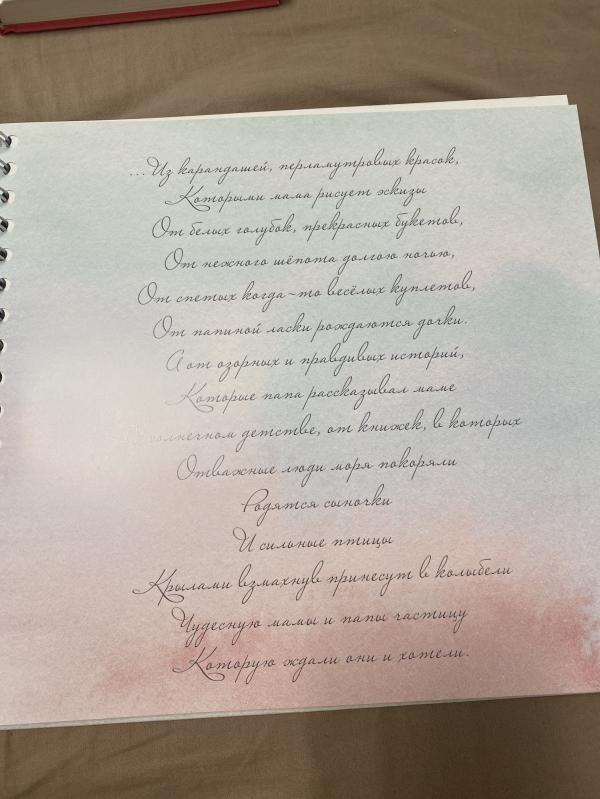 ...Из карандашей, перламутровых красок,
Которыми мама рисует эскизы
От белых голубок, прекрасных букетов,
От нежного шёпота долгою ночью,
От спетых когда-то весёлых куплетов,
От папиной ласки рождаются дочки.
А от озорных и правдивых историй,
Которые папа рассказывал маме
солнечном детстве, от книжек, в которых
Отважные люди моря покоряли
Родятся сыночки
И сильные птицы
Крылами взмахнув принесут в колыбели
Чудесную мамы и папы частицу
Которую ждали они и хотели.